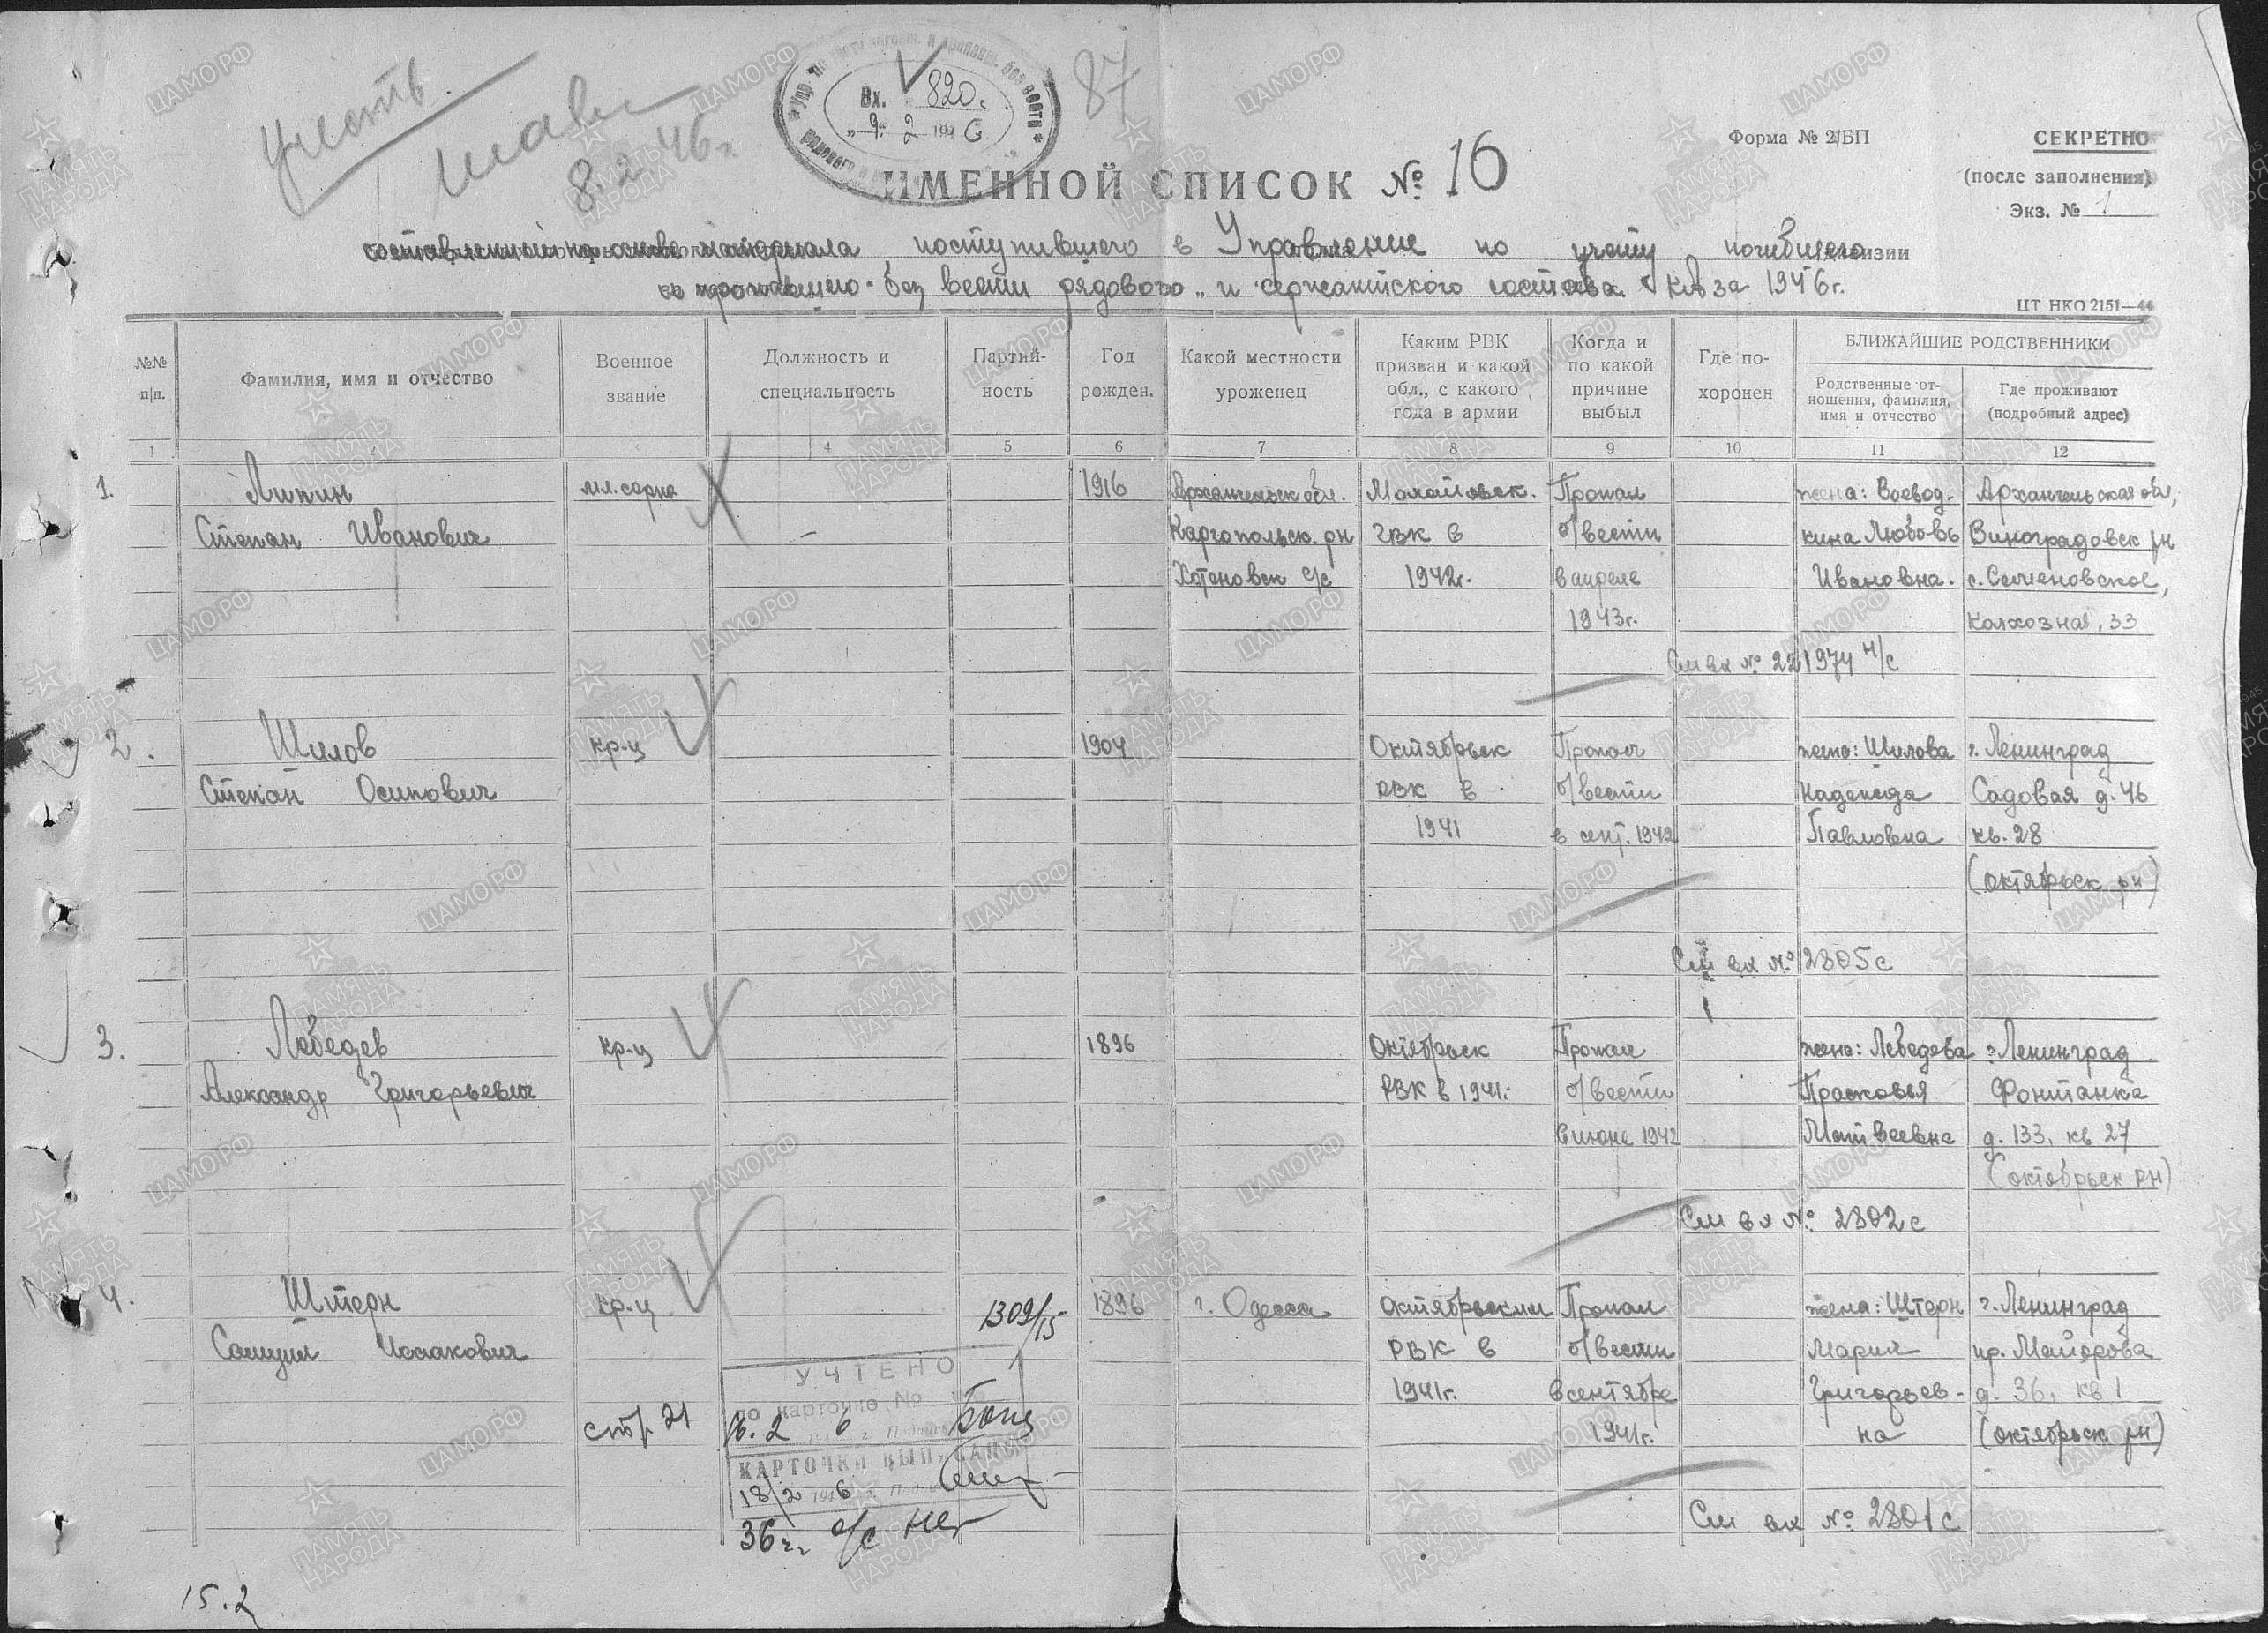 учесть
8.2.46г.
Вх. 820с
9. 2 1946
87
Форма № 2/БП
СЕКРЕТНО
(после заполнения)
Экз. № 1
ИМЕННОЙ СПИСОК № 16
составленный на основе материала, поступившего в Управление по учету погибшего
и пропавшего без вести рядового и сержантского состава за 1946г.
ЦТ НКО 2151—44
№№ п/п.
Фамилия, имя и отчество
Военное звание
Должность и специальность
Партий-ность
Год рожден.
Какой местности уроженец
Каким РВК призван и какой обл., с какого года в армии
Когда и по какой причине выбыл
Где по-хоронен
БЛИЖАЙШИЕ РОДСТВЕННИКИ
Родственные от-ношения, фамилия, имя и отчество
Где проживают (подробный адрес)
1 4 5 6 7 8 9 10 11 12
1. Липин мл. серж 1916 Архангельск обл. Молотовск. Пропал жена: Воевод- Архангельская обл,
Степан Иванович – Каргопольск. рн ГВК в б/вести кина Любовь Виноградовск рн
Хотеновск с/с 1942г. в апреле Ивановна. с. Семеновское,
1943г. Колхозная, 33
См вх № 221974 н/с
2. Шилов кр-ц 1904 Октябрьск Пропал жена: Шилова г. Ленинград
Степан Осипович РВК в б/вести Надежда Садовая д. 46
1941 в сент. 1942 Павловна кв. 28
(Октябрьск рн)
См вх № 2805с
3. Лебедев кр-ц 1896 Октябрьск Пропал жена: Лебедева г. Ленинград
Александр Григорьевич РВК в 1941г. б/вести Прасковья Фонтанка
в июне 1942 Матвеевна д. 133, кв 27
(Октябрьск рн)
См вх № 2802с
4. Штерн кр-ц 1309/15 1896 г. Одесса Октябрьским Пропал жена: Штерн г. Ленинград
Самуил Исаакович РВК в б/вести Мария пр. Майорова
УЧТЕНО 1941г. в сентябре Григорьев- д. 36, кв 1
по карточке № 1941г. на (Октябрьск рн)
стр. 21
16.2 6
КАРТОЧКИ ВЫПИСАНЫ
18/2 1946
См вх № 2801с
36г. о/с нет
15.2